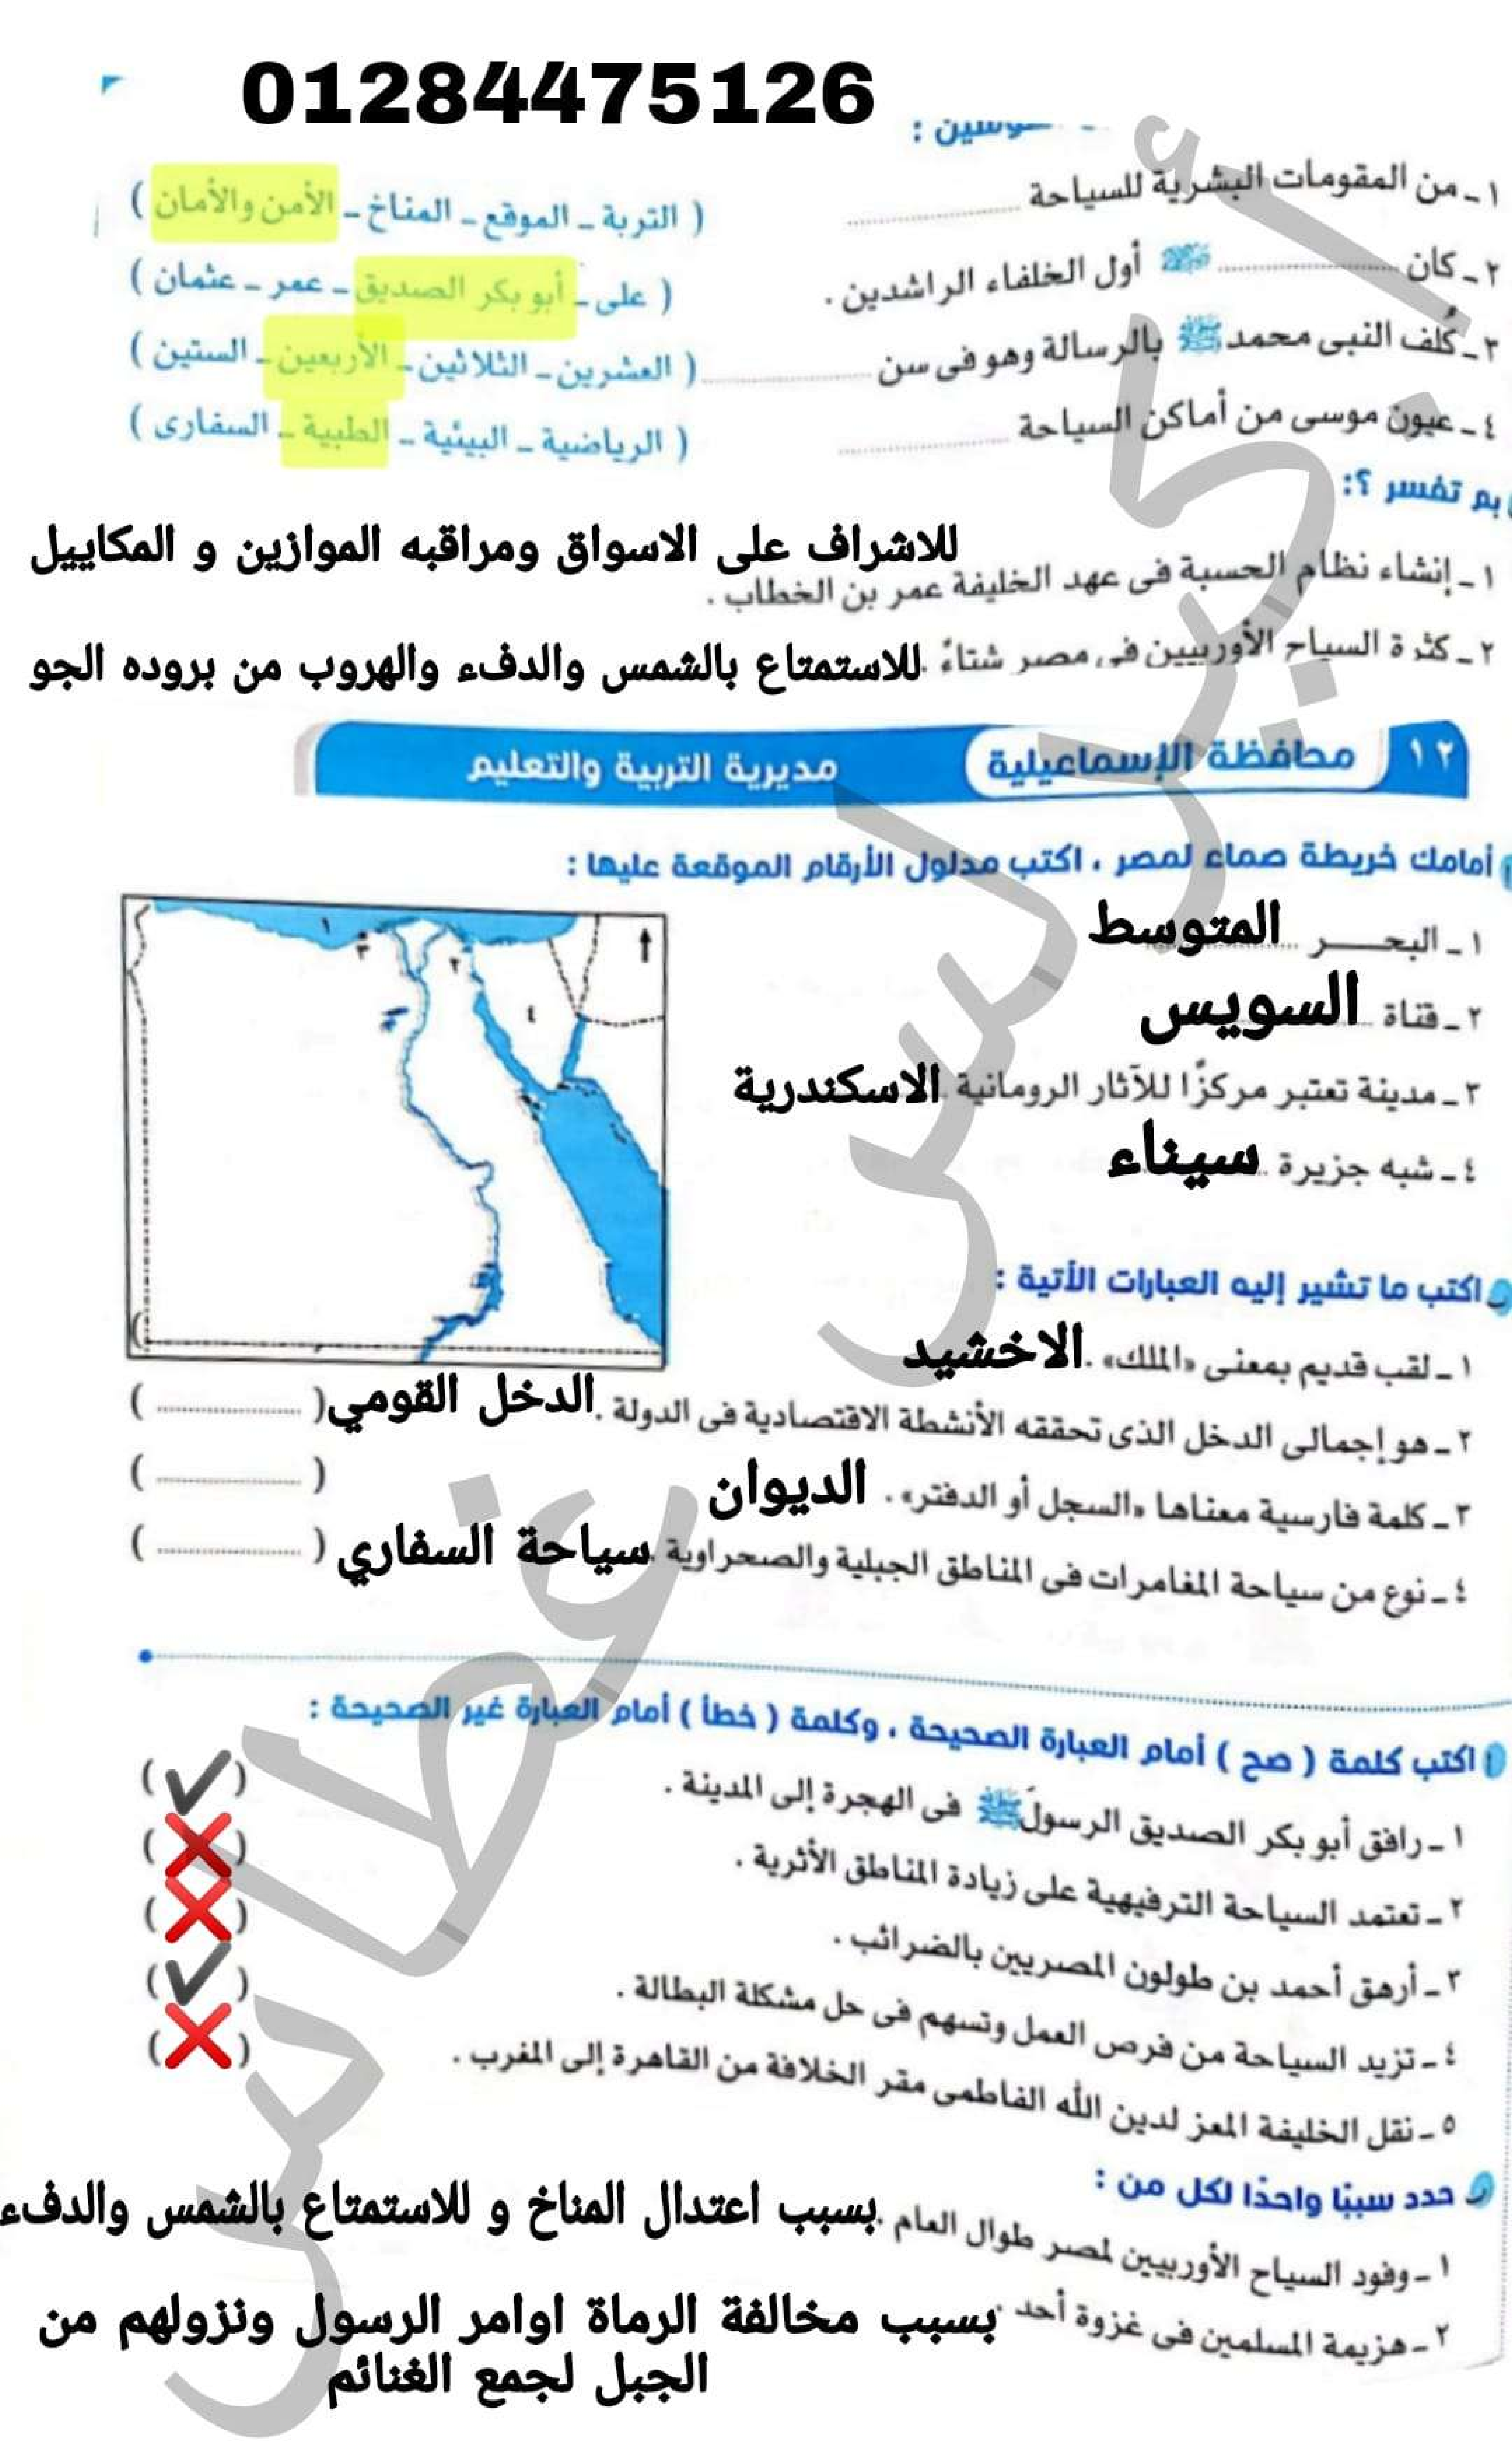 01284475126
١ - من المقومات البشرية للسياحة ............ ( التربة - الموقع - المناخ - الأمن والأمان )
٢ - كان ............ أول الخلفاء الراشدين . ( على - أبو بكر الصديق - عمر - عثمان )
٣ - كُلف النبى محمد ﷺ بالرسالة وهو فى سن ............ ( العشرين - الثلاثين - الأربعين - الستين )
٤ - عيون موسى من أماكن السياحة ............ ( الرياضية - البيئية - الطبية - السفارى )
بم تفسر ؟:
١ - إنشاء نظام الحسبة فى عهد الخليفة عمر بن الخطاب . للاشراف على الاسواق ومراقبه الموازين و المكاييل
٢ - كثرة السياح الأوربيين فى مصر شتاءً . للاستمتاع بالشمس والدفء والهروب من بروده الجو
١٢ محافظة الإسماعيلية مديرية التربية والتعليم
أمامك خريطة صماء لمصر ، اكتب مدلول الأرقام الموقعة عليها :
١ - البحـــر المتوسط
٢ - قناة السويس
٣ - مدينة تعتبر مركزًا للآثار الرومانية الاسكندرية
٤ - شبه جزيرة سيناء
١
٢
٣
٤
اكتب ما تشير إليه العبارات الأتية :
١ - لقب قديم بمعنى «الملك» . الاخشيد
٢ - هو إجمالى الدخل الذى تحققه الأنشطة الاقتصادية فى الدولة . الدخل القومي ( ............ )
٣ - كلمة فارسية معناها «السجل أو الدفتر» . الديوان ( ............ )
٤ - نوع من سياحة المغامرات فى المناطق الجبلية والصحراوية . سياحة السفاري ( ............ )
اكتب كلمة ( صح ) أمام العبارة الصحيحة ، وكلمة ( خطأ ) أمام العبارة غير الصحيحة :
١ - رافق أبو بكر الصديق الرسولَ ﷺ فى الهجرة إلى المدينة . (✔)
٢ - تعتمد السياحة الترفيهية على زيادة المناطق الأثرية . (❌)
٣ - أرهق أحمد بن طولون المصريين بالضرائب . (❌)
٤ - تزيد السياحة من فرص العمل وتسهم فى حل مشكلة البطالة . (✔)
٥ - نقل الخليفة المعز لدين الله الفاطمى مقر الخلافة من القاهرة إلى المغرب . (❌)
حدد سببًا واحدًا لكل من :
١ - وفود السياح الأوربيين لمصر طوال العام . بسبب اعتدال المناخ و للاستمتاع بالشمس والدفء
٢ - هزيمة المسلمين فى غزوة أحد . بسبب مخالفة الرماة اوامر الرسول ونزولهم من
الجبل لجمع الغنائم